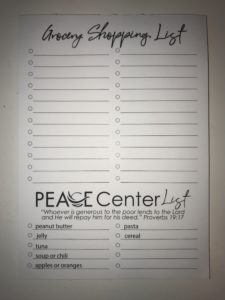 Grocery Shopping List
PEACE Center List
"Whoever is generous to the poor lends to the Lord
and He will repay him for his deed." Proverbs 19:17
peanut butter
jelly
tuna
soup or chili
apples or oranges
pasta
cereal